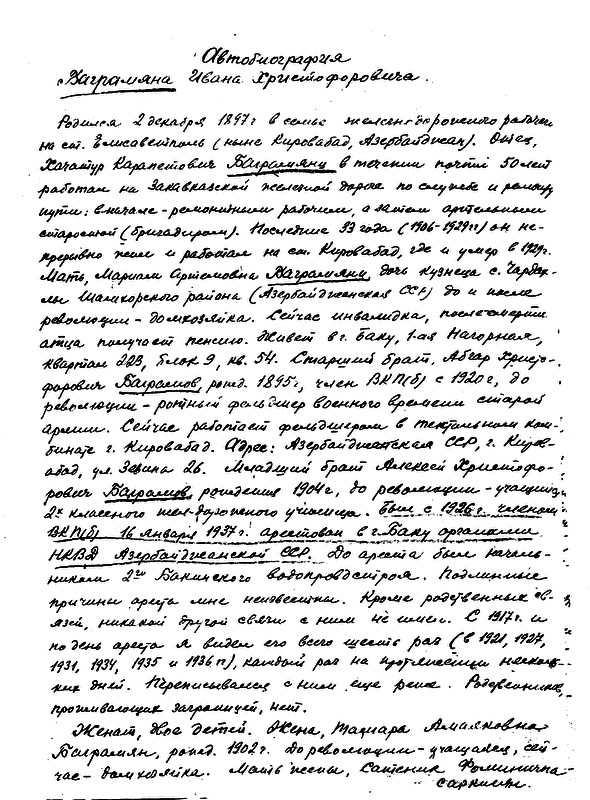 Автобиография
Баграмяна Ивана Христофоровича.
Родился 2 декабря 1897г в семье железнодорожного рабочего
на ст. Елисаветполь (ныне Кировабад, Азербайджан). Отец,
Хачатур Карапетович Баграмянц в течении почти 50 лет
работал на Закавказской железной дороге по службе и ремонту
пути: вначале - ремонтным рабочим, а затем артельным
старостой (бригадиром). Последние 33 года (1906-1929гг) он не-
прерывно жил и работал на ст. Кировабад, где и умер в 1929г.
Мать, Мариам Артемовна Баграмянц, дочь кузнеца с. Чардах-
лы Шамхорского района (Азербайджанская ССР) до и после
революции - домхозяйка. Сейчас инвалидка, после смерти
отца получает пенсию. Живет в г. Баку, 1-ая Нагорная,
квартал 223, блок 9, кв. 54. Старший брат, Абгар Христо-
форович Баграмов, рожд. 1895г, член ВКП(б) с 1920г, до
революции - ротный фельдшер военного времени старой
армии. Сейчас работает фельдшером в текстильном ком-
бинате г. Кировабад. Адрес: Азербайджанская ССР, г. Киров-
абад, ул. Зевина 26. Младший брат Алексей Христофо-
рович Баграмов, рождения 1904г, до революции - учащийся
2х классного жел-дорожного училища. Был с 1926г. членом
ВКП(б). 16 января 1937г. арестован в г. Баку органами
НКВД Азербайджанской ССР. До ареста был началь-
ником 2го Бакинского водопроводстроя. Подлинные
причины ареста мне неизвестны. Кроме родственных св-
язей, никакой другой связи с ним не имел. С 1917г. и
по день ареста я видел его всего шесть раз (в 1921, 1927,
1931, 1934, 1935 и 1936 гг), каждый раз на протяжении несколь-
ких дней. Переписывался с ним еще реже. Родственников,
проживающих заграницей, нет.
Женат, двое детей. Жена, Тамара Амаяковна
Баграмян, рожд. 1902г. До революции - учащаяся, сей-
час - домхозяйка. Мать жены, Сатеник Фоминична
Саркисян.